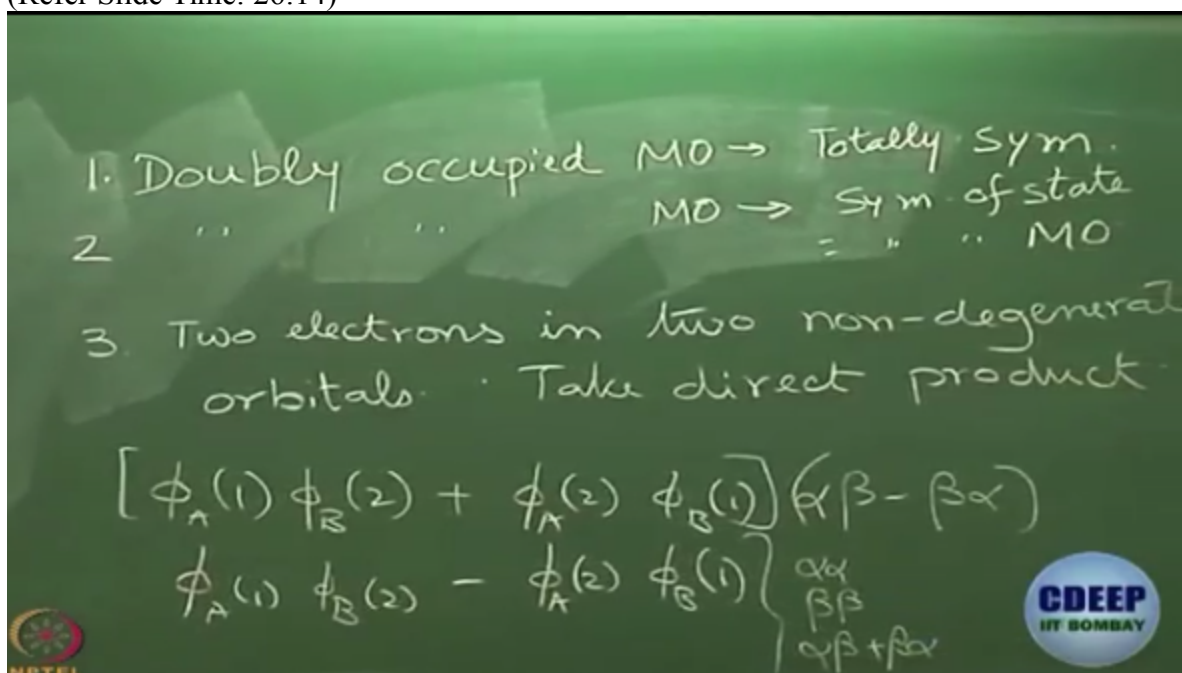 (Refer Slide Time: 20:14)
1. Doubly occupied MO → Totally Sym.
2 " " MO → Sym. of state
= " " MO
3. Two electrons in two non-degenerat
orbitals. Take direct product
[ϕ_A(1) ϕ_B(2) + ϕ_A(2) ϕ_B(1)] (αβ - βα)
ϕ_A(1) ϕ_B(2) - ϕ_A(2) ϕ_B(1) } αα
ββ
αβ + βα
CDEEP
IIT BOMBAY
NPTEL